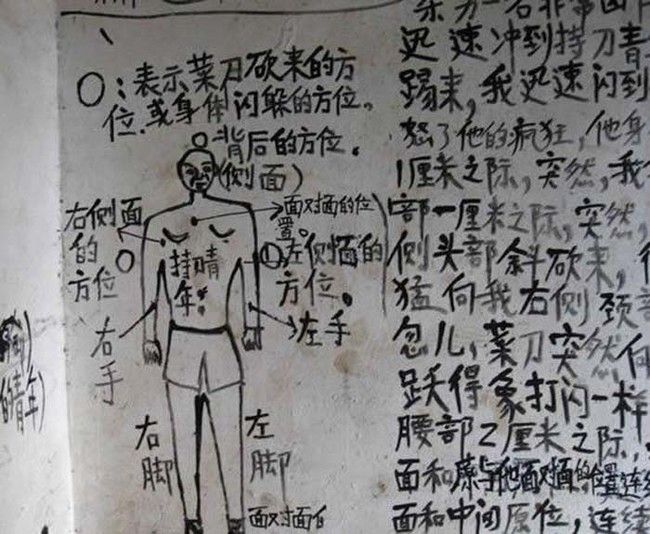 ○：表示菜刀砍来的方
位.或身体闪躲的方位。
背后的方位。
(侧面)
面对面的位
置。
右侧面
的
方位
左侧面的
方位。
持
年
右
手
左手
右
脚
左
脚
面对面
的青年)
迅速冲到持刀青
踢来，我迅速闪到
怒了他的疯狂，他身
1厘米之际，突然，我
部一厘米之际，突然，
侧头部斜砍来，
猛向我右侧颈部
忽儿，菜刀突然向
跃得象打闪一样
腰部2厘米之际，
面和 与他面对面的位置连续
面和中间原位，连续